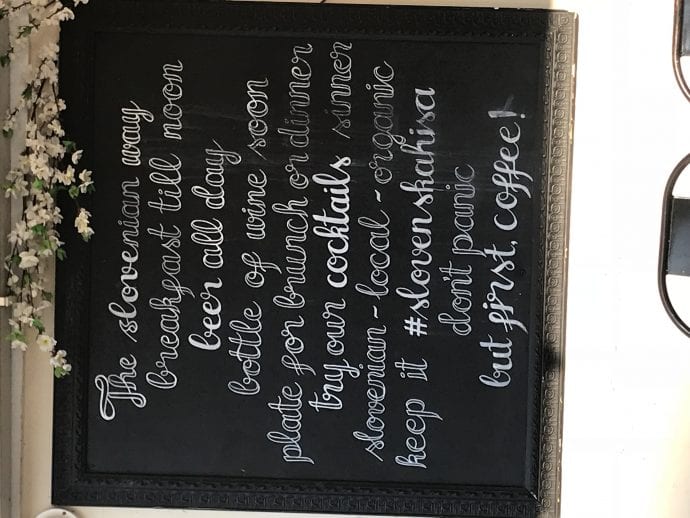 The slovenian way
breakfast till noon
beer all day
bottle of wine soon
plate for brunch or dinner
try our cocktails sinner
slovenian - local - organic
keep it #slovenskahisa
don't panic
but first, coffee!